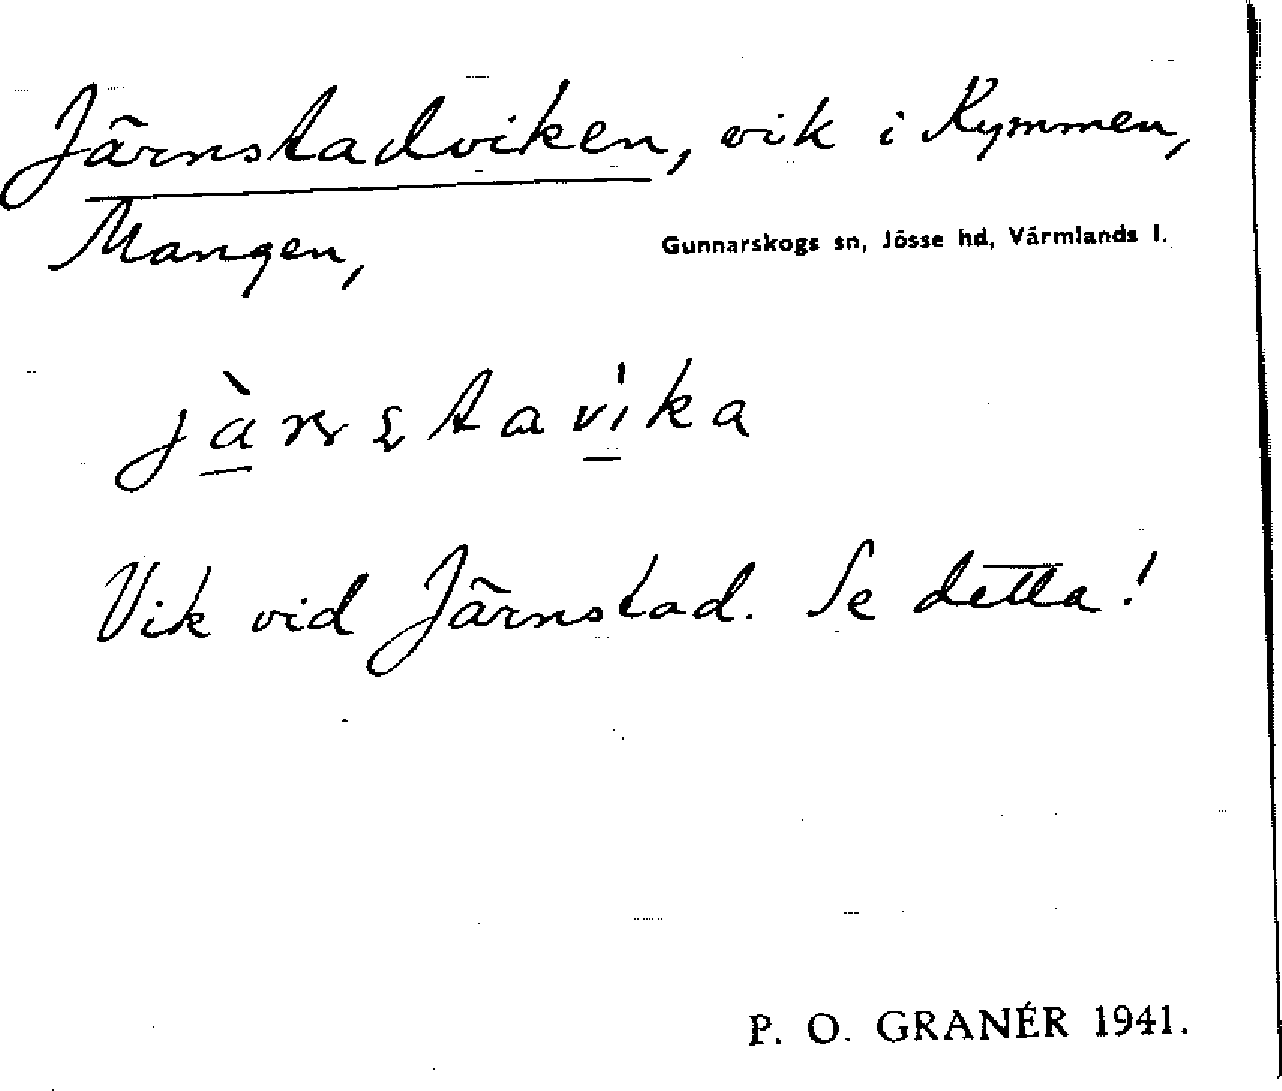 Järnstadviken, vik i Kymmen,
Mangen, Gunnarskogs sn, Jösse hd, Värmlands l.
jàrstavíka
Vik vid Järnstad. Se detta!
P. O. GRANÉR 1941.